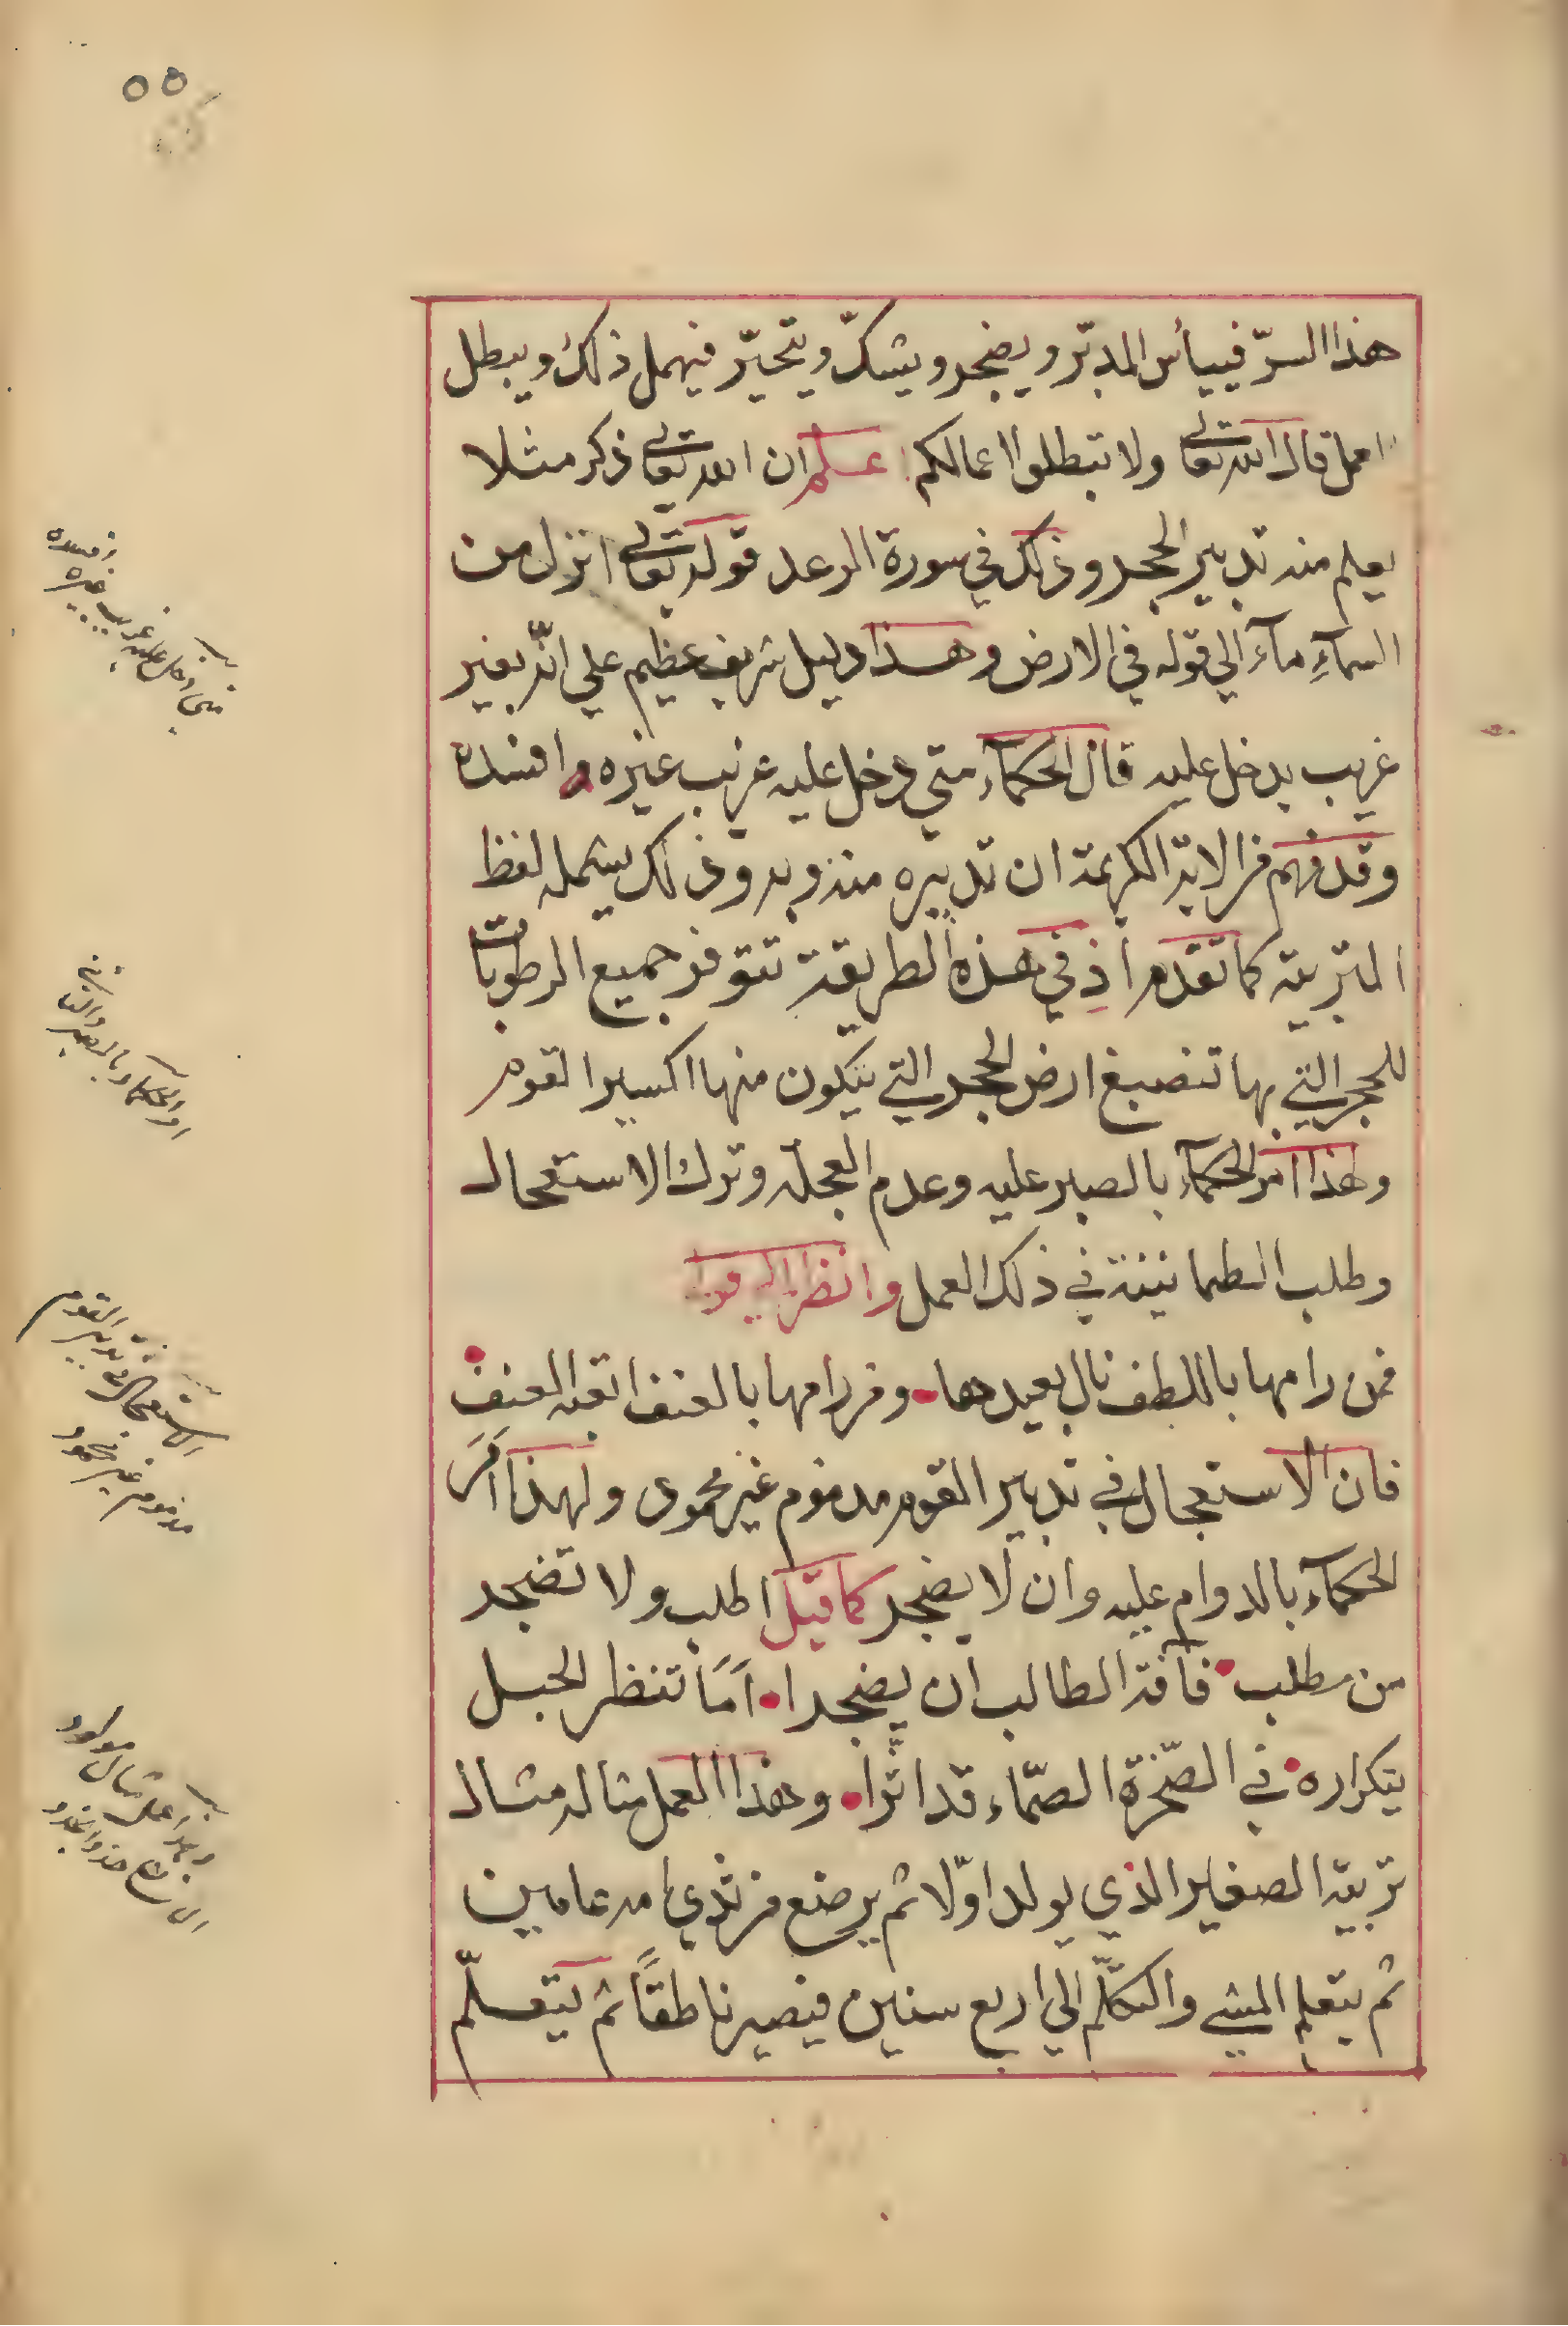 ٥٥
هذا السرّ فييأس المدبّر ويضجر ويشكّ ويتحيّر فيهمل ذلك ويبطل
العمل قال الله تعالى ولا تبطلوا اعمالكم اعلم ان الله تعالى ذكر مثلا
يعلم منه تدبير الحجر وذلك في سورة الرعد قوله تعالى انزل من
السمآءِ مآء الي قوله في الارض وهذا دليل شريف عظيم علي انّه بغير
غريب يدخل عليه قال الحكمآء متي دخل عليه غريب غيره وافسده
وقد فهم من الاية الكريمة ان تدبيره منه وبه وذلك يشمله لفظ
التربية كما تقدم اذ في هذه الطريقة تتوفر جميع الرطوبات
للحجر التي بها تنصبغ ارض الحجر التي يتكون منها اكسير القوم
ولهذا امر الحكمآء بالصبر عليه وعدم العجلة وترك الاستعجال
وطلب الطمانينة في ذلك العمل وانظر الي قول
فمن رامها باللطف نال بعيدها ومن رامها بالعنف اتعبه العنف
فان الاستعجال في تدبير القوم مذموم غير محمود ولهذا اَمَرَ
الحكمآء بالدوام عليه وان لا يضجر كما قيل اطلب ولا تضجر
من مطلب فآفة الطالب ان يضجرا اَمَا تنظر الحبل
بتكراره في الصّخرة الصمّاء قد اثّرا وهذا العمل مثاله مثال
تربية الصغير الذي يولد اوّلا ثم يرضع من ثدي امه عامين
ثم يتعلم المشي والتكلّم الي اربع سنين فيصير ناطقاً ثم يتعلّم
متي دخل عليه غريب غيره
افسده
اوامر الحكماء بالصبر والتاني
الاستعجال في تدبير القوم
مذموم غير محمود